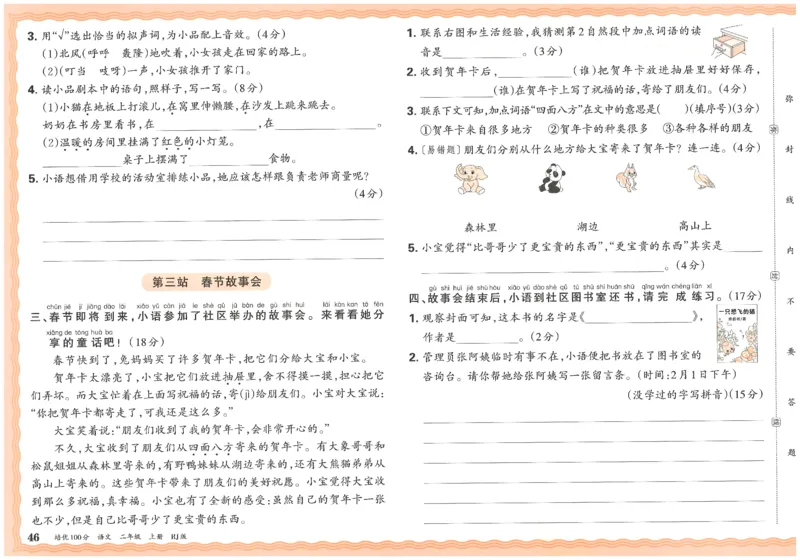 3. 用“√”选出恰当的拟声词,为小品配上音效。(4分)
(1)北风(呼呼 轰隆)地吹着,小女孩走在回家的路上。
(2)(叮当 吱呀)一声,小女孩推开了家门。
4. 读小品剧本中的语句,照样子,写一写。(8分)
(1)小猫在地板上打滚儿,在窝里伸懒腰,在沙发上跳来跳去。
奶奶在书房里看书,在____________,在____________。
(2)温暖的房间里挂满了红色的小灯笼。
____________桌子上摆满了____________食物。
5. 小语想借用学校的活动室排练小品,她应该怎样跟负责老师商量呢?
(4分)
第三站 春节故事会
chūn jié jí jiāng dào lái xiǎo yǔ cān jiā le shè qū jǔ bàn de gù shi huì lái kàn kan tā fēn
三、春节即将到来,小语参加了社区举办的故事会。来看看她分
xiǎng de tóng huà ba
享的童话吧!(18分)
春节快到了,兔妈妈买了许多贺年卡,把它们分给大宝和小宝。
贺年卡太漂亮了,小宝把它们放进抽屉里,舍不得摸一摸,担心把它
们弄坏。而大宝忙着在上面写祝福的话,寄(jì)给朋友们。小宝对大宝说:
“你把贺年卡都寄走了,可我还是这么多。”
大宝笑着说:“朋友们收到了我的贺年卡,会非常开心的。”
不久,大宝收到了朋友们从四面八方寄来的贺年卡。有大象哥哥和
松鼠姐姐从森林里寄来的,有野鸭妹妹从湖边寄来的,还有大熊猫弟弟从
高山上寄来的。这些贺年卡带来了朋友们的美好祝愿。小宝觉得大宝收
到那么多祝福,真幸福。小宝也有了全新的感受:虽然自己的贺年卡一张
也不少,但是自己比哥哥少了更宝贵的东西。
46 培优100分 语文 二年级 上册 RJ版
1. 联系右图和生活经验,我猜测第2自然段中加点词语的读
音是____________。(3分)
2. 收到贺年卡后,____________(谁)把贺年卡放进抽屉里好好保存,
____________(谁)在贺年卡上写了祝福的话,寄给了朋友们。(4分)
3. 联系下文可知,加点词语“四面八方”在文中的意思是( )(填序号)(3分)
①贺年卡来自很多地方 ②贺年卡的种类很多 ③各种各样的朋友
4. [易错题]朋友们分别从什么地方给大宝寄来了贺年卡?连一连。(4分)
森林里 湖边 高山上
5. 小宝觉得“比哥哥少了更宝贵的东西”,“更宝贵的东西”其实是______
____________。(4分)
gù shi huì jié shù hòu xiǎo yǔ dào shè qū tú shū shì huán shū qǐng wán chéng liàn xí
四、故事会结束后,小语到社区图书室还书,请完成练习。(17分)
1. 观察封面可知,这本书的名字是《____________》,
作者是____________。(2分)
一只想飞的猫
2. 管理员张阿姨临时有事不在,小语便把书放在了图书室的
咨询台。请你帮她给张阿姨写一张留言条。(时间:2月1日下午)
(没学过的字写拼音)(15分)
弥
封
线
内
不
要
答
题